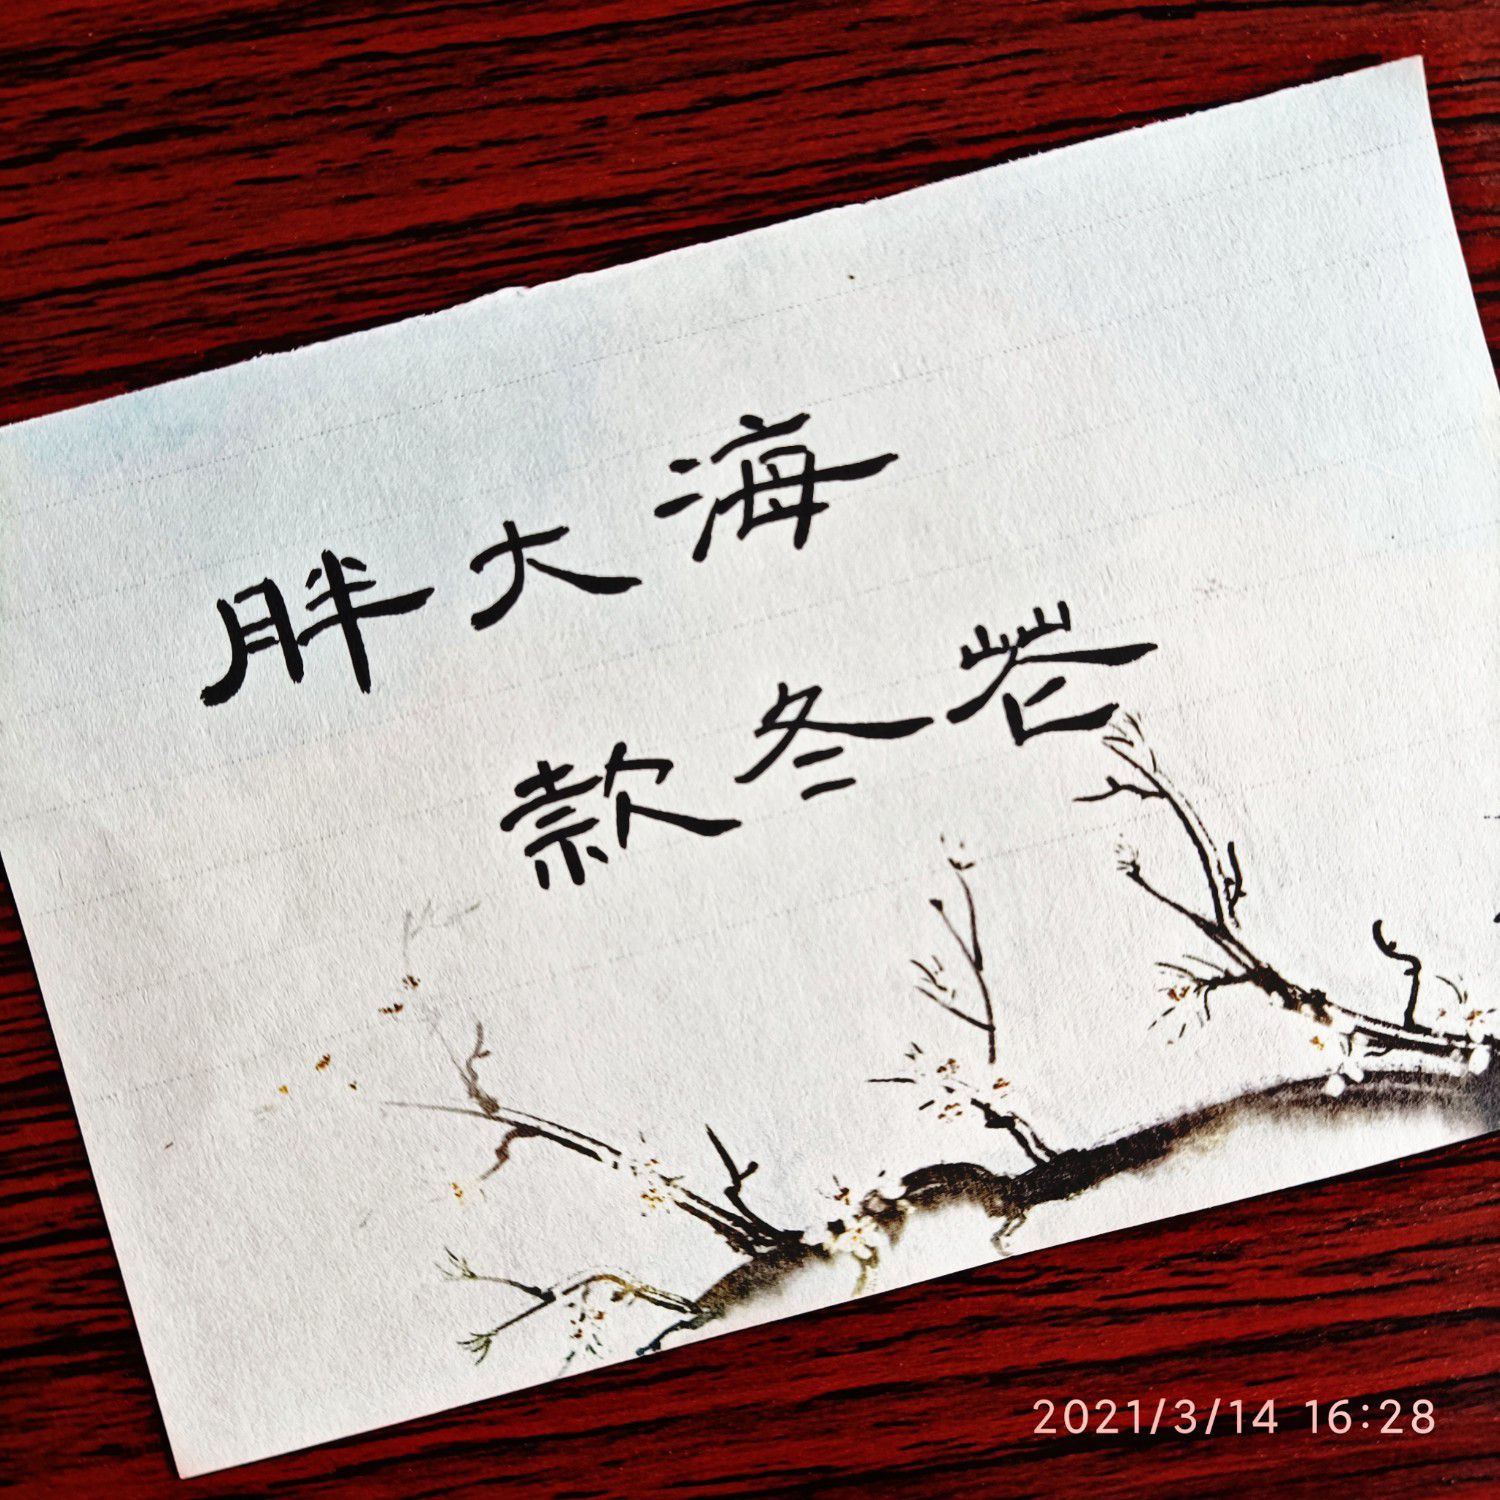 胖大海
款冬花
2021/3/14 16:28